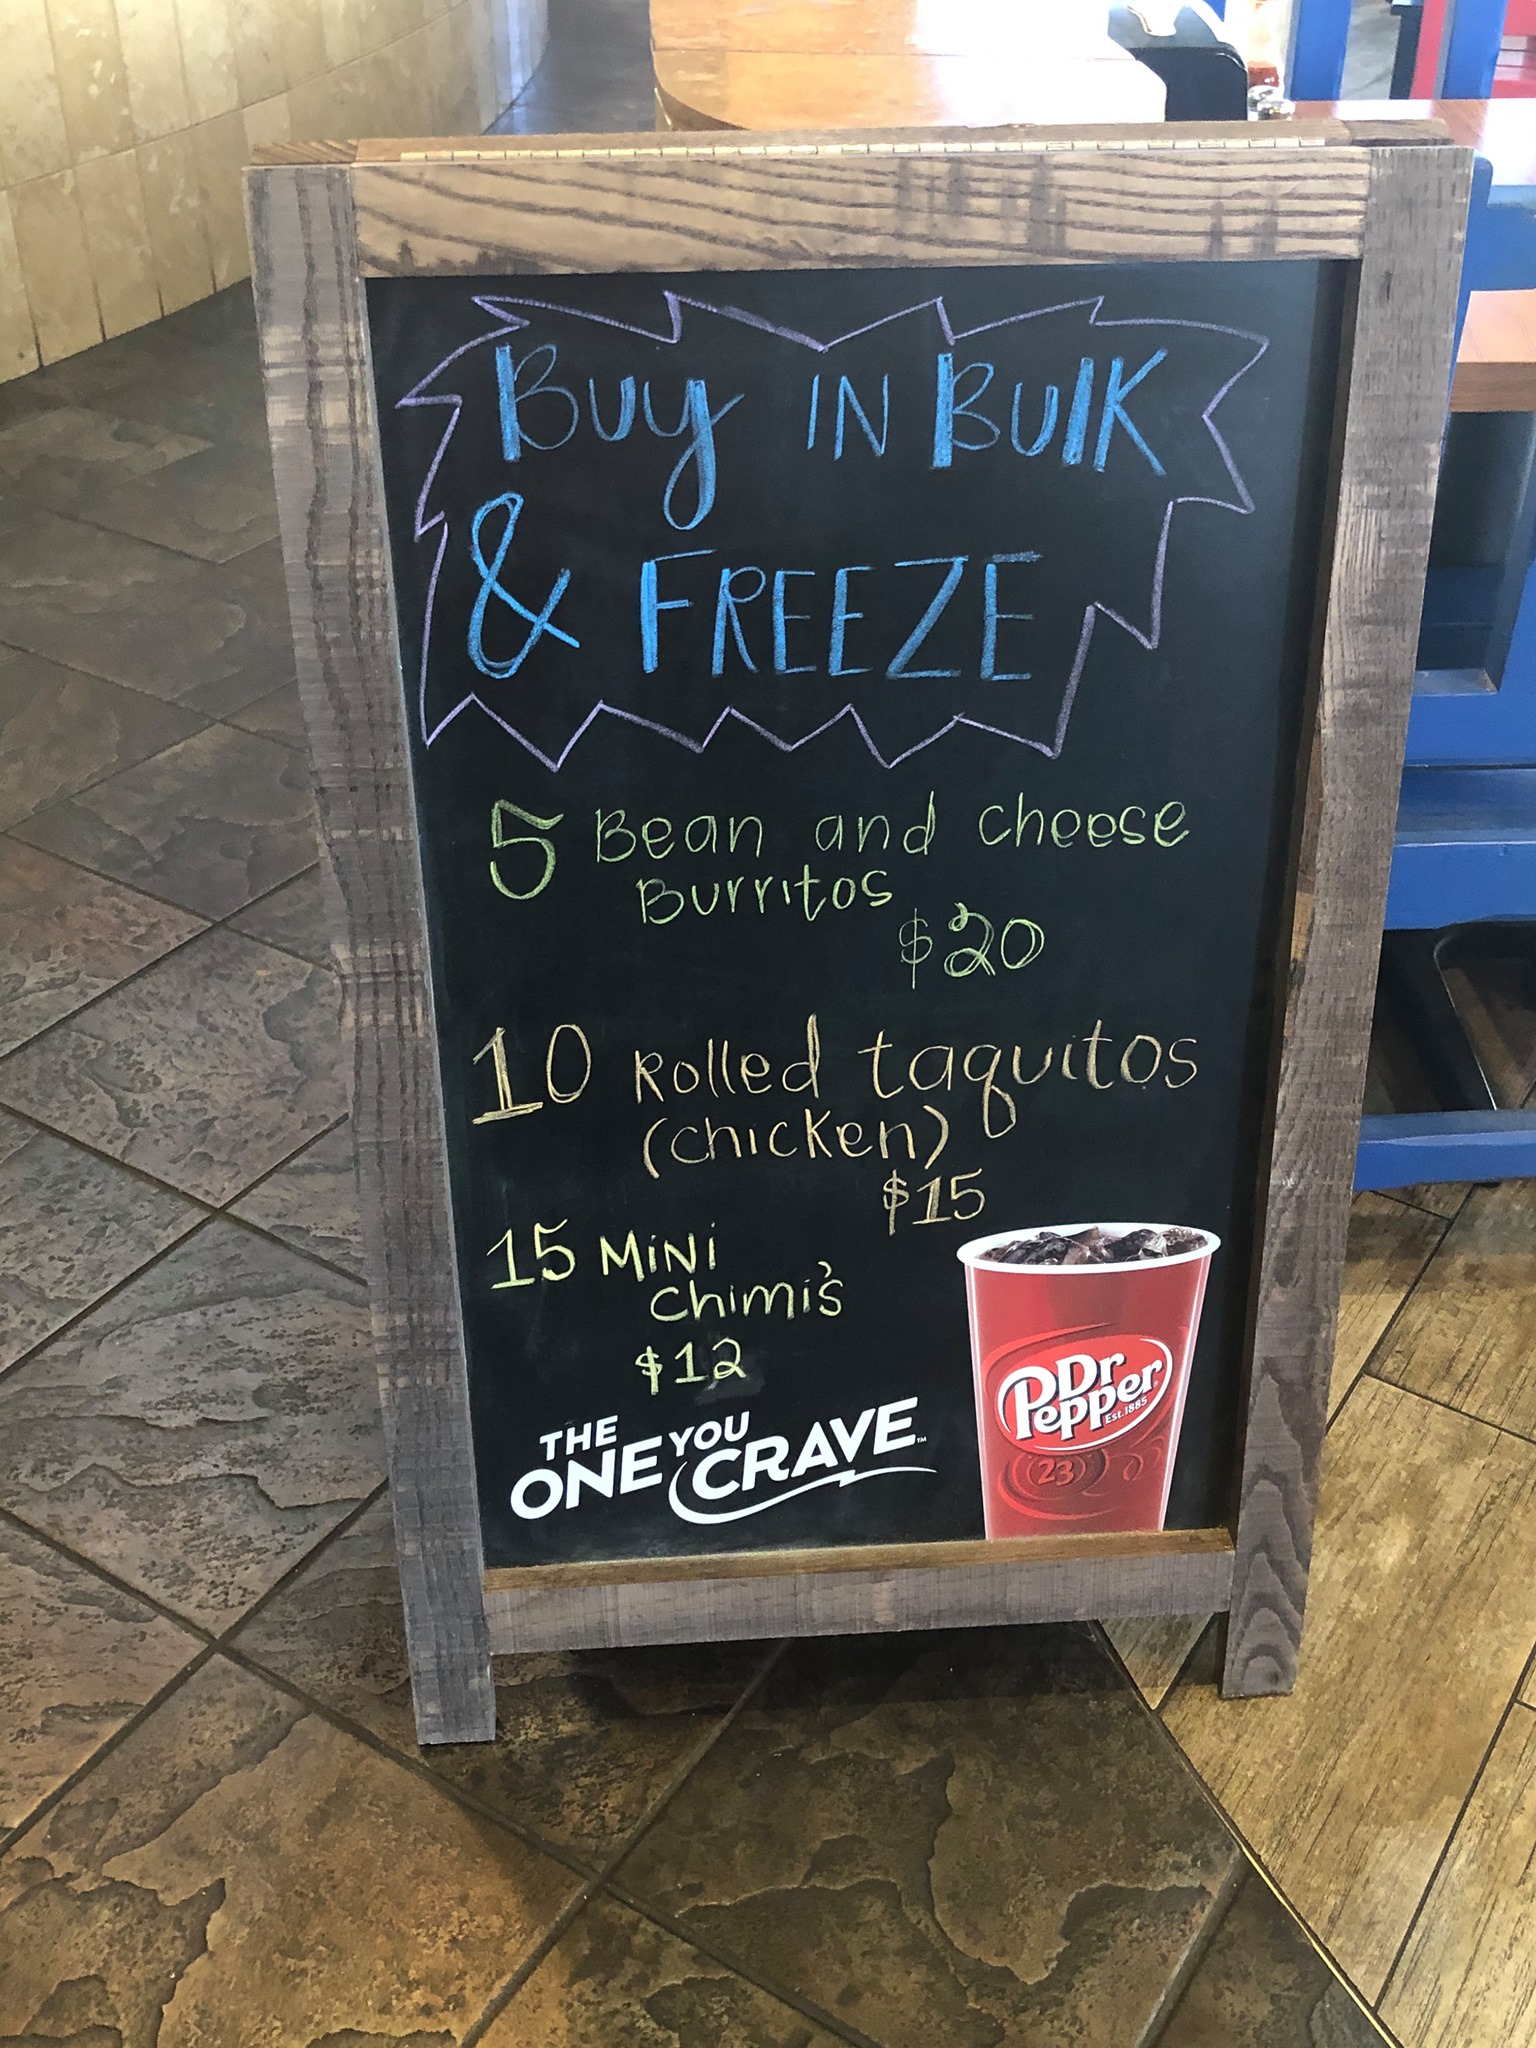 Buy IN BulK
& FREEZE
5 Bean and cheese
Burritos
$20
10 Rolled taquitos
(chicken)
$15
15 MiNi
Chimi's
$12
THE
ONE YOU
CRAVE™
Dr
Pepper®
Est.1885
23